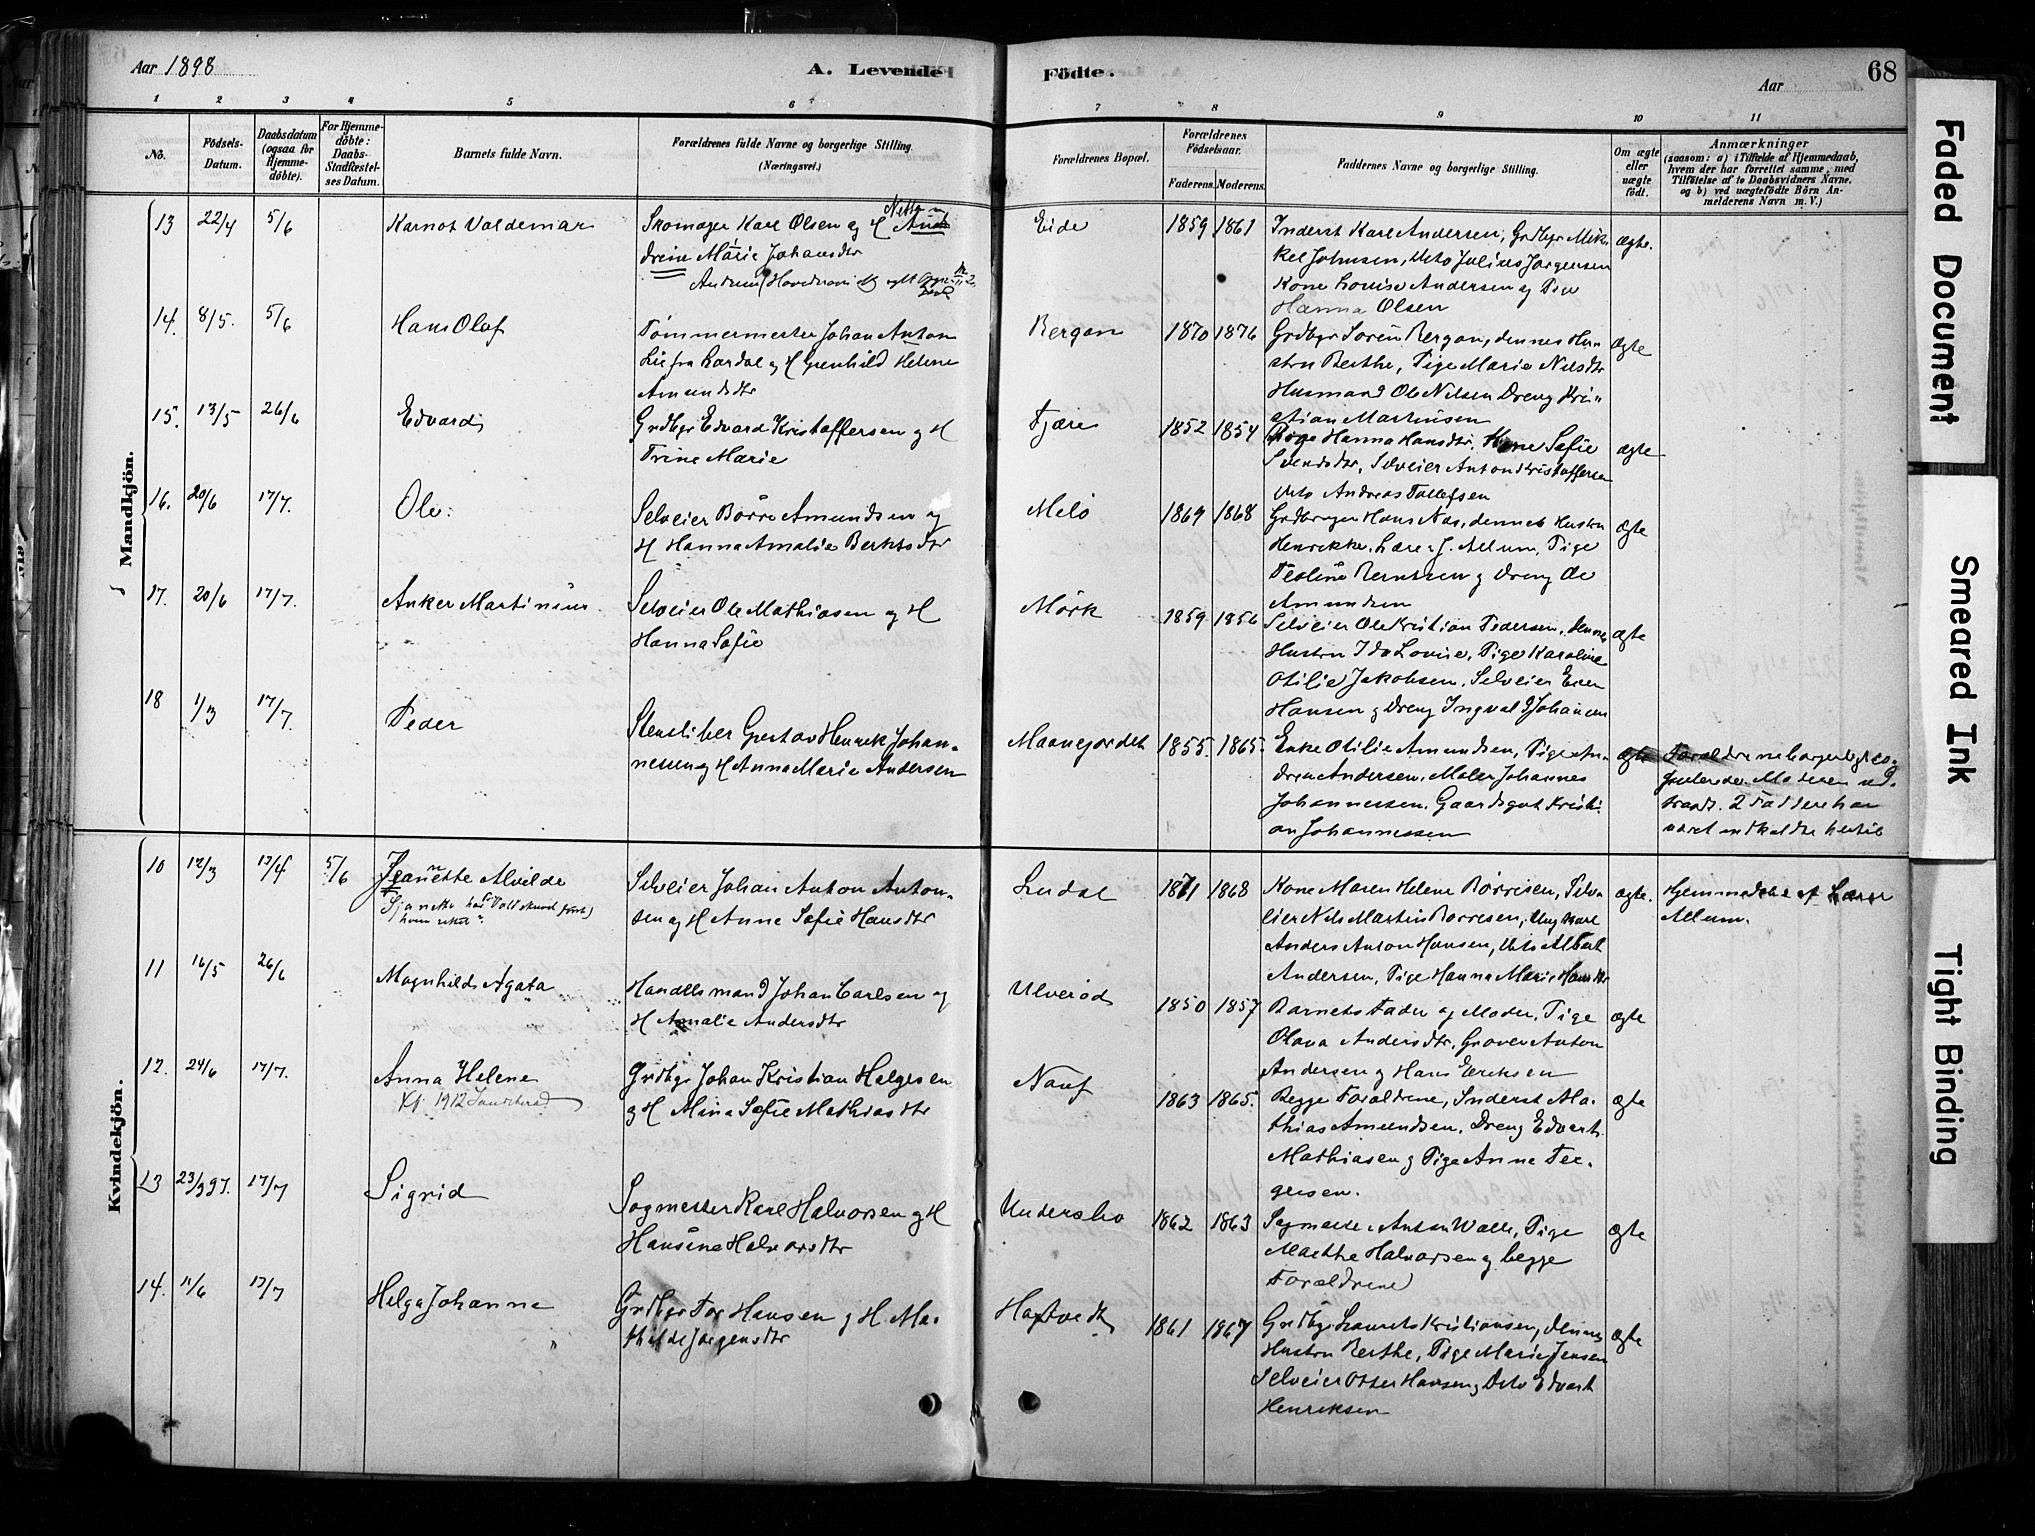 Aar 1898
A. Levende
Födte.
Aar
68
1 2 3 4 5 6 7 8 9 10 11
No.
Födsels-Datum.
Daabsdatum (ogsaa for Hjemme-döbte).
For Hjemme-döbte: Daabs-Stadfæstel-ses Datum.
Barnets fulde Navn.
Forældrenes fulde Navne og borgerlige Stilling. (Næringsvei.)
Forældrenes Bopæl.
Forældrenes Födselsaar.
Faderens. Moderens.
Faddernes Navne og borgerlige Stilling.
Om ægte eller uægte födt.
Anmærkninger
(saasom: a) i Tilfælde af Hjemmedaab, hvem der har forrettet samme, med Tilföielse af to Daabsvidners Navne, og b) ved uægtefödte Börn Anmelderens Navn m. V.)
Mandkjön.
13 22/4 5/6 Karnot Valdemar
Skomager Karl Olsen og H
drine Marie Johansdtr
Eide 1859 1861
Inderst Karl Andersen, Grdbgr Mik
kel Johnsen, Do Julius Jørgensen
Kone Lovise Andersen og Pige
Hanna Olsen
ægte.
14. 8/5. 5/6 Hans Olaf
Tømmermester Johan Anton
Lie fra Lardal og H Gunhild Helene
Amundsdtr
Bergan 1870 1876
Grdbgr Søren Bergan, dennes Hu
stru Berthe, Pige Marie Nilsdtr
Husmand Ole Nilsen Dreng Kri
stian Martinsen
ægte
15. 13/5 26/6 Edvard
Grdbgr Edvard Kristoffersen og H
Trine Marie
Fjære 1852 1854
Pige Hanna Hansdtr. Kone Sofie
Svendsdtr, Selveier Anton Kristoffersen
Do Andreas Tollefsen
ægte
16. 20/6 17/7. Ole:
Selveier Børre Amundsen og
H Hanna Amalie Berntsdtr
Melø 1869 1868
Grdbruger Hans Næs, dennes Hustru
Henrikke, Lærer J. Allum, Pige
Teoline Berntsen og Dreng Ole
Amundsen
ægte
17. 20/6 17/7. Anker Martinius
Selveier Ole Mathiasen og H
Hanna Sofie
Mørk 1859 1856
Selveier Ole Kristian Pedersen, dennes
Hustru Ida Lovise, Pige Karoline
Otilie Jakobsen, Selveier Even
Hansen og Dreng Ingvald Johansen
ægte
18 1/3 17/7. Peder
Stensliber Gustav Henrik Johan-
nessen og H Anna Marie Andersen
Maanejordet 1855. 1865.
Enke Otilie Amundsen, Pige An
drine Andersen, Maler Johannes
Johannessen, Gaardsgut Kristi
an Johannessen
ægte
Forældrene borgerligt co-
pulerede. Moderen ud-
traadt. 2 Faddere har
været indkaldte hertil
Kvindekjön.
10 12/3 17/4 5/6 Jeanette Alvilde
Selveier Johan Anton Anton-
sen og H Anne Sofie Hansdtr
Lindal 1871 1868
Kone Maren Helene Børresen, Selv-
eier Nils Martin Børresen, Ung Karl
Anders Anton Hansen, Do Albert
Andersen, Pige Hanna Marie Hansdtr
ægte.
Hjemmedøbt af Lærer
Allum.
11 16/5 26/6 Magnhild Agata
Handelsmand Johan Carlsen og
H Amalie Andersdtr
Ulverød 1850 1857
Barnets Fader og Moder, Pige
Olava Andersdtr, Graver Anton
Andersen og Hans Eriksen
ægte
12. 24/6 17/7. Anna Helene
Kf. 1912 Sandeherad
Grdbgr Johan Kristian Helgesen
og H Mina Sofie Mathiasdtr
Nauf 1863 1865.
Begge Forældrene, Inderst Ma-
thias Amundsen, Dreng Edvart
Mathiasen og Pige Anne Tor-
gersen.
ægte
13 23/3 97. 17/7 Sigrid
Sagmester Karl Halvorsen og H
Hansine Halvorsdtr
Undersbo 1862 1863
Sagmester Anton Walle, Pige
Marthe Halvorsen og begge
Forældrene
ægte
14. 11/6 17/7 Helga Johanne
Grdbgr Tor Hansen og H. Ma-
thilde Jørgensdtr
Haftvedt 1861 1867
Grdbgr Laurits Kristiansen, dennes
Hustru Berthe, Pige Marie Jensen
Selveier Otter Hansen, Do Edvart
Henriksen
ægte
Faded Document
Smeared Ink
Tight Binding